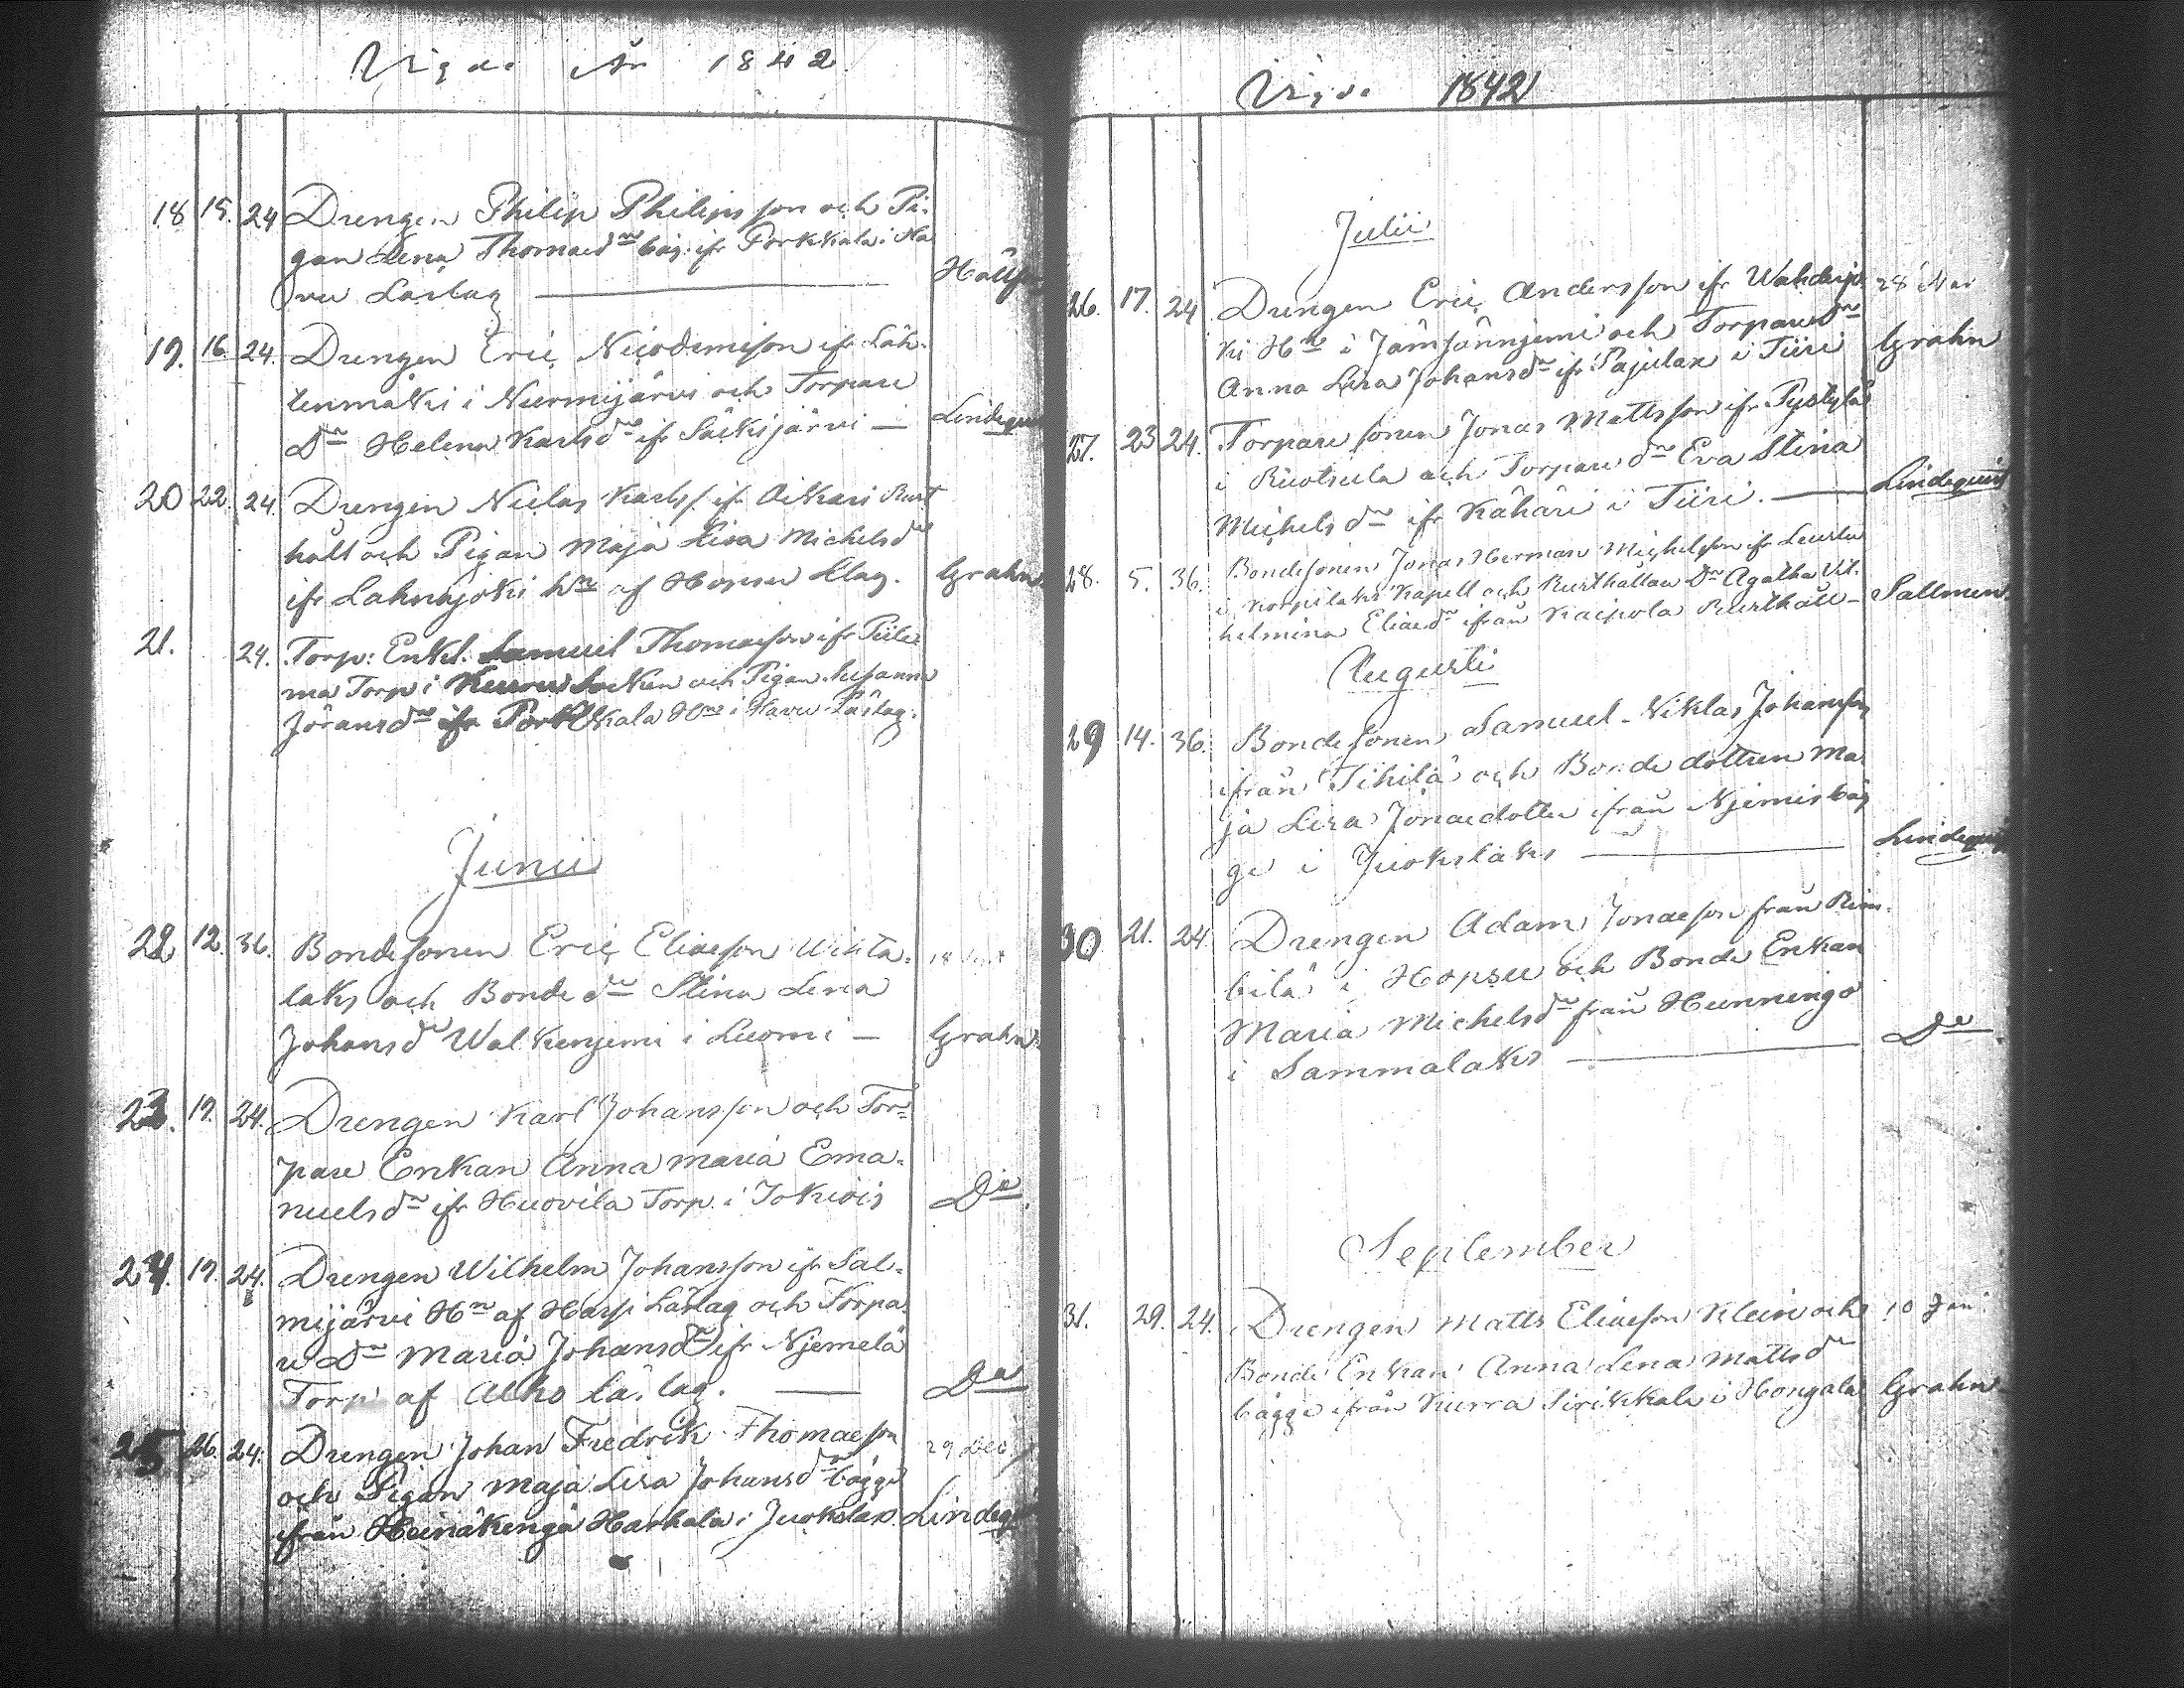 Vigde År 1842
18 15. 24 Drengen Philip Philipsson och Pi-
gan Lena Thomaed:r båg: ifr Porkkala i Ha
vu Läslag Hällfo
19. 16. 24. Drengen Eric Nicodemison ifr Läh-
tenmäki i Nurmijärvi och Torpare
D:r Helena Karlsd:r ifr Säckijärvi — Lindequ
20 22. 24. Drengen Niclas Karlss. ifr Oikari Rust
håll och Pigan Maja Lisa Michelsd:r
ifr Lahnajoki H:n af Hopsu Llag. Grahn.
21. 24. Torp: Enkl. Samuel Thomaeson ifr Piile-
ma Torp i Kuru Socken och Pigan Susanna
Jöransd:r ifr Porkkala H:n i Havu Läslag.
Junii
22 12. 36. Bondesonen Eric Eliaeson Wihta-
laks och Bonde d:r Stina Lena
Johansd:r Walkenjemi i Luomi — Grahn.
23. 19. 24. Drengen Karl Johansson och Tor-
pare Enkan Anna Maria Ema-
nuelsd:r ifr Huovila Torp. i Jokiois D:o
24. 19. 24. Drengen Wilhelm Johansson ifr Sal-
mijärvi H:n af Harju Läslag och Torpa-
re D:r Maria Johansd:r ifr Njemelä
Torp af Alho Läslag. — D:o
25 26. 24. Drengen Johan Fredrik Thomaeson 29 Dec.
och Pigan Maja Lisa Johansd:r bägge
ifrån Heinäkengä Harhala i Juokslax. Lindeq
Vigde 1842
Julii
26. 17. 24 Drengen Eric Andersson ifr Wahderpä 28 Mar
ki H:n i Jämsännjemi och Torpare D:r
Anna Lisa Johansd:r ifr Pajulax i Tiiri Grahn
27. 23 24. Torpare sonen Jonas Mattsson ifr Pyölylä
i Ruotsula och Torpare d:r Eva Stina
Michels d:r ifr Kähäri i Tiiri. — Lindequist
28. 5. 36. Bondesonen Jonas Herman Michelson ifr Leustu
i Korpilaks Kapell och Rusthållare D:r Agatha Vil-
helmina Eliaed:r ifrån Kaipola Rusthåll — Sallmen.
Augusti
29 14. 36. Bondesonen Samuel Niklas Johansson
ifrån Tihilä och Bonde dottren Ma
ja Lisa Jonaedotter ifrån Njemis båg
ge i Juokslaks — Lindequist
30 21. 24. Drengen Adam Jonaeson från Rim-
bilä i Hopsu och Bonde Enkan
Maria Michelsd:r från Hunningo
i Sammalaks — D:o
September
31. 29. 24. Drengen Matts Eliaeson Klein och 10 Jan.
Bonde Enkan Anna Lena Mattsd:r
bägge ifrån Kurra Sirikkala i Hongala Grahn